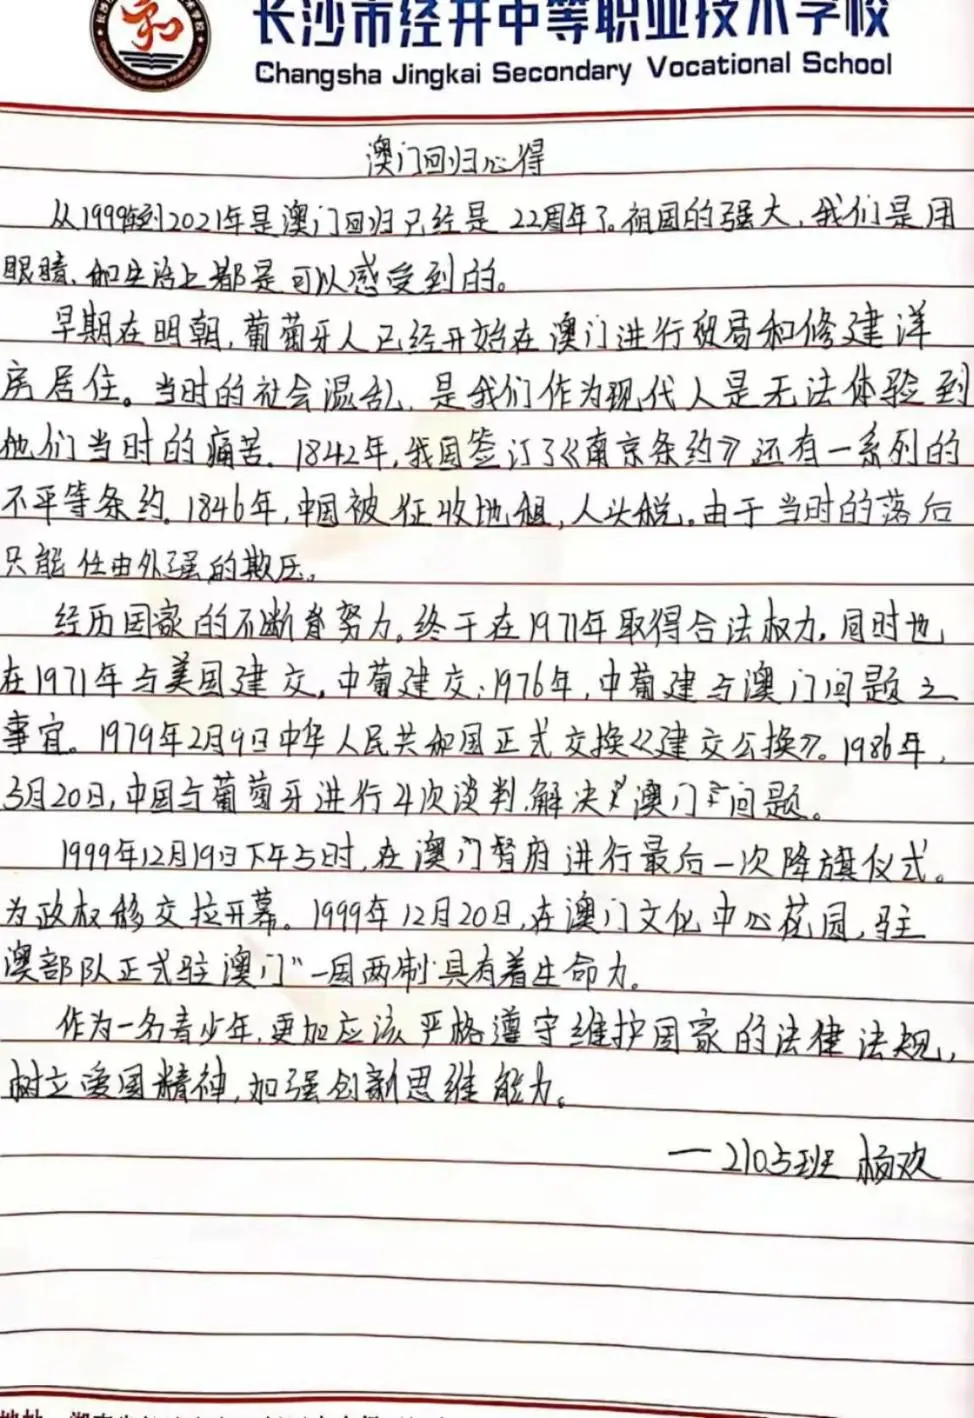 长沙市经开中等职业技术学校
Changsha Jingkai Secondary Vocational School
澳门回归心得
从1999年到2021年是澳门回归已经是22周年了。祖国的强大,我们是用
眼睛,和生活上都是可以感受到的。
早期在明朝,葡萄牙人已经开始在澳门进行贸易和修建洋
房居住。当时的社会混乱,是我们作为现代人是无法体验到
他们当时的痛苦。1842年,我国签订了《南京条约》还有一系列的
不平等条约。1846年,中国被征收地租,人头税。由于当时的落后
只能任由外强的欺压。
经历国家的不断努力。终于在1971年取得合法权力。同时也
在1971年与美国建交。中葡建交;1976年,中葡建与澳门问题之
事宜。1979年2月9日中华人民共和国正式交换《建交公换》。1986年,
3月20日,中国与葡萄牙进行4次谈判,解决"澳门"问题。
1999年12月19日下午5时,在澳门督府进行最后一次降旗仪式。
为政权移交拉开幕。1999年12月20日,在澳门文化中心花园,驻
澳部队正式驻澳门"一国两制"具有着生命力。
作为一名青少年,更加应该严格遵守维护国家的法律法规,
树立爱国精神,加强创新思维能力。
—2105班 杨欢